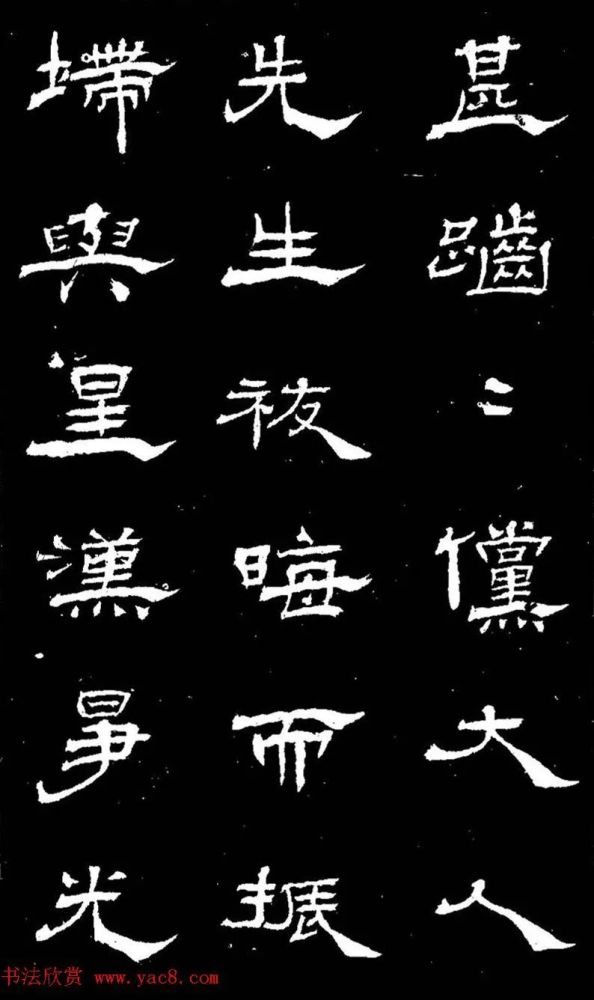 甚齪〻儻大人
先生祓晦而振
墆與星漢爭光
书法欣赏 www.yac8.com